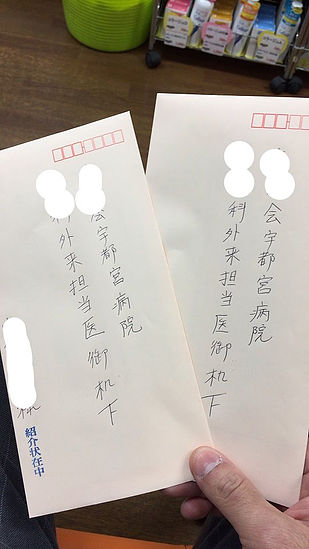 会宇都宮病院
科外来担当医御机下
様
紹介状在中
会宇都宮病院
科外来担当医御机下